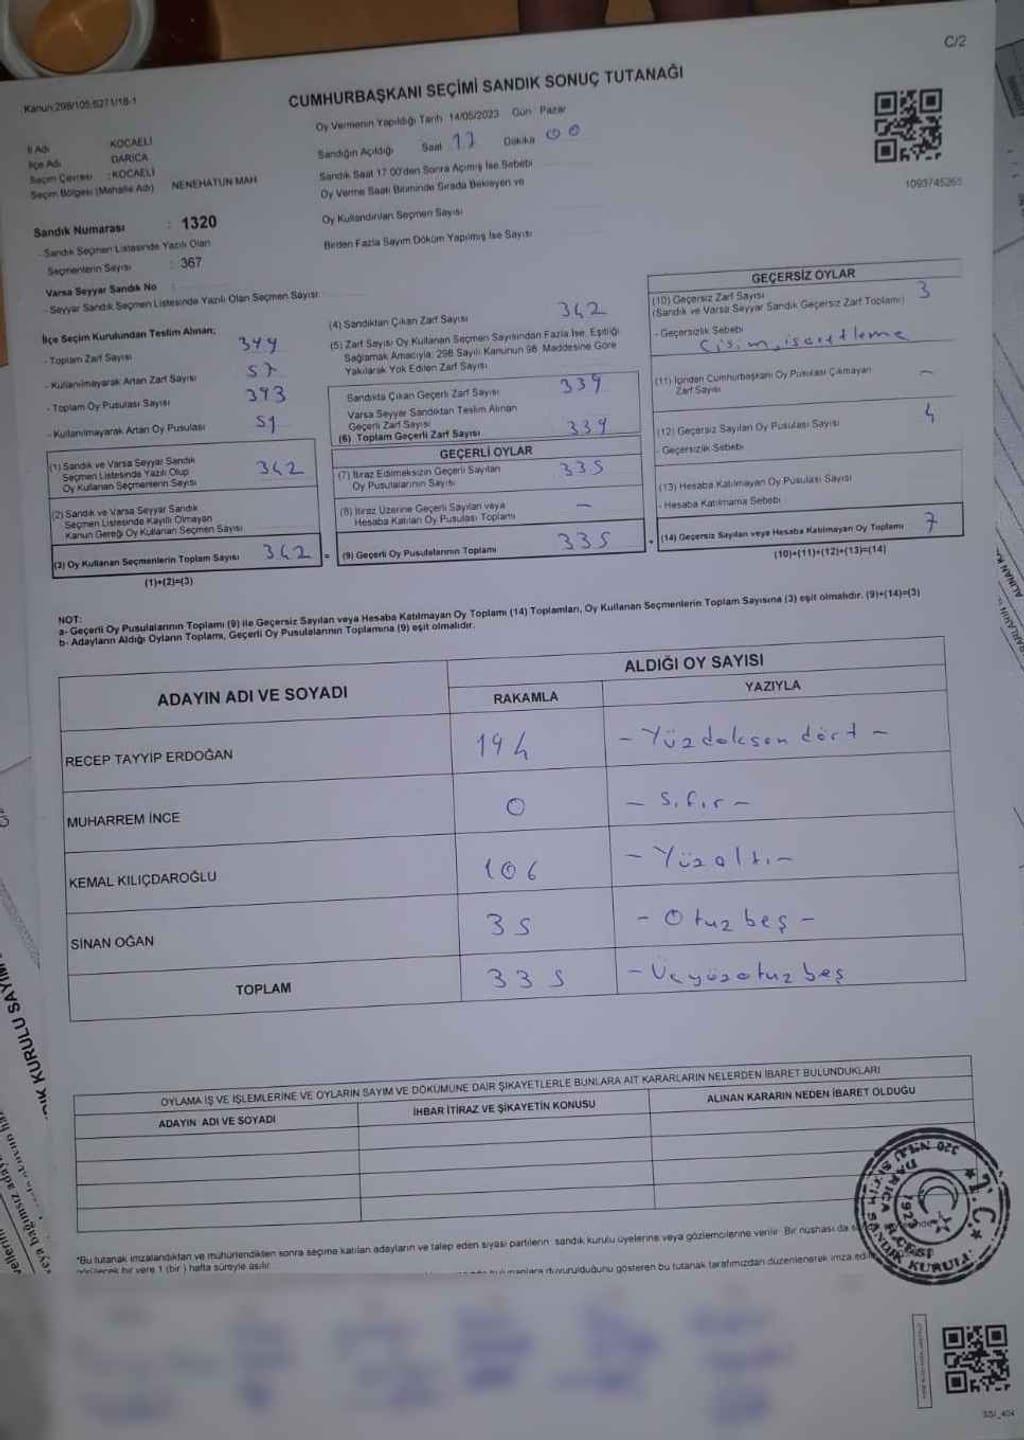 C/2
Kanun:298/105,6271/18-1
CUMHURBAŞKANI SEÇİMİ SANDIK SONUÇ TUTANAĞI
Oy Vermenin Yapıldığı Tarih 14/05/2023 Gün Pazar
İl Adı KOCAELİ
İlçe Adı DARICA
Seçim Çevresi : KOCAELİ
Seçim Bölgesi (Mahalle Adı) NENEHATUN MAH
Sandığın Açıldığı Saat 17 Dakika 00
Sandık Saat 17.00'den Sonra Açılmış İse Sebebi
Oy Verme Saati Bitiminde Sırada Bekleyen ve
Oy Kullandırılan Seçmen Sayısı
Birden Fazla Sayım Döküm Yapılmış İse Sayısı
1093745265
Sandık Numarası : 1320
- Sandık Seçmen Listesinde Yazılı Olan
Seçmenlerin Sayısı : 367
Varsa Seyyar Sandık No
- Seyyar Sandık Seçmen Listesinde Yazılı Olan Seçmen Sayısı:
İlçe Seçim Kurulundan Teslim Alınan;
- Toplam Zarf Sayısı
- Kullanılmayarak Artan Zarf Sayısı 57
- Toplam Oy Pusulası Sayısı 393
- Kullanılmayarak Artan Oy Pusulası 51
(1) Sandık ve Varsa Seyyar Sandık
Seçmen Listesinde Yazılı Olup
Oy Kullanan Seçmenlerin Sayısı 342
(2) Sandık ve Varsa Seyyar Sandık
Seçmen Listesinde Kayıtlı Olmayan
Kanun Gereği Oy Kullanan Seçmen Sayısı
(3) Oy Kullanan Seçmenlerin Toplam Sayısı 342 =
(1)+(2)=(3)
(4) Sandıktan Çıkan Zarf Sayısı 342
(5) Zarf Sayısı Oy Kullanan Seçmen Sayısından Fazla İse, Eşitliği
Sağlamak Amacıyla, 298 Sayılı Kanunun 98. Maddesine Göre
Yakılarak Yok Edilen Zarf Sayısı
Sandıkta Çıkan Geçerli Zarf Sayısı 339
Varsa Seyyar Sandıktan Teslim Alınan
Geçerli Zarf Sayısı
(6) Toplam Geçerli Zarf Sayısı 339
GEÇERLİ OYLAR
(7) İtiraz Edilmeksizin Geçerli Sayılan
Oy Pusulalarının Sayısı 335
(8) İtiraz Üzerine Geçerli Sayılan veya
Hesaba Katılan Oy Pusulası Toplamı -
(9) Geçerli Oy Pusulalarının Toplamı 335 +
GEÇERSİZ OYLAR
(10) Geçersiz Zarf Sayısı 3
(Sandık ve Varsa Seyyar Sandık Geçersiz Zarf Toplamı)
- Geçersizlik Sebebi
Cisim, işaretleme
(11) İçinden Cumhurbaşkanı Oy Pusulası Çıkmayan
Zarf Sayısı -
(12) Geçersiz Sayılan Oy Pusulası Sayısı 4
- Geçersizlik Sebebi
(13) Hesaba Katılmayan Oy Pusulası Sayısı
- Hesaba Katılmama Sebebi
(14) Geçersiz Sayılan veya Hesaba Katılmayan Oy Toplamı 7
(10)+(11)+(12)+(13)=(14)
NOT:
a- Geçerli Oy Pusulalarının Toplamı (9) ile Geçersiz Sayılan veya Hesaba Katılmayan Oy Toplamı (14) Toplamları, Oy Kullanan Seçmenlerin Toplam Sayısına (3) eşit olmalıdır. (9)+(14)=(3)
b- Adayların Aldığı Oyların Toplamı, Geçerli Oy Pusulalarının Toplamına (9) eşit olmalıdır.
ADAYIN ADI VE SOYADI
ALDIĞI OY SAYISI
RAKAMLA YAZIYLA
RECEP TAYYİP ERDOĞAN 194 - Yüzdoksan dört -
MUHARREM İNCE 0 - Sıfır -
KEMAL KILIÇDAROĞLU 106 - Yüzaltı -
SİNAN OĞAN 35 - Otuzbeş -
TOPLAM 335 - Üçyüzotuzbeş
OYLAMA İŞ VE İŞLEMLERİNE VE OYLARIN SAYIM VE DÖKÜMÜNE DAİR ŞİKAYETLERLE BUNLARA AİT KARARLARIN NELERDEN İBARET BULUNDUKLARI
ADAYIN ADI VE SOYADI İHBAR İTİRAZ VE ŞİKAYETİN KONUSU ALINAN KARARIN NEDEN İBARET OLDUĞU
*Bu tutanak imzalandıktan ve mühürlendikten sonra seçime katılan adayların ve talep eden siyasi partilerin sandık kurulu üyelerine veya gözlemcilerine verilir. Bir nüshası da
bir yere 1 (bir) hafta süreyle asılır.
duyurulduğunu gösteren bu tutanak tarafımızdan düzenlenerek imza
T.C.
DARICA İLÇESİ
SANDIK KURULU